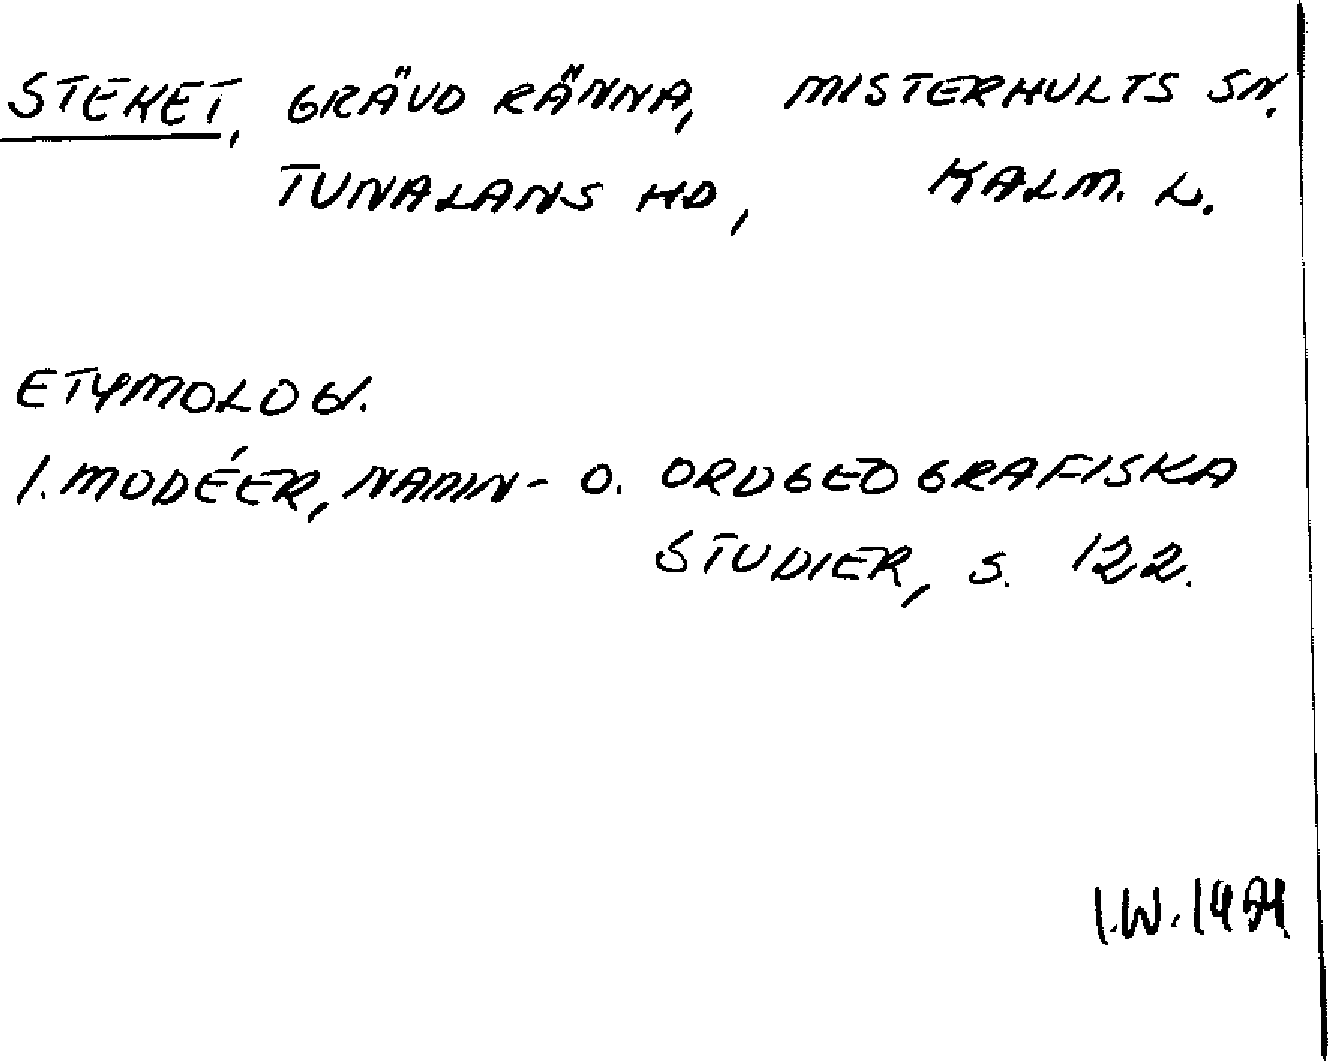 STEKET, GRÄVD RÄNNA, MISTERHULTS SN.
TUNALANS HD, KALM. L.
ETYMOLOGI.
I. MODÉER, NAMN- O. ORDGEOGRAFISKA
STUDIER, S. 122.
I.W.